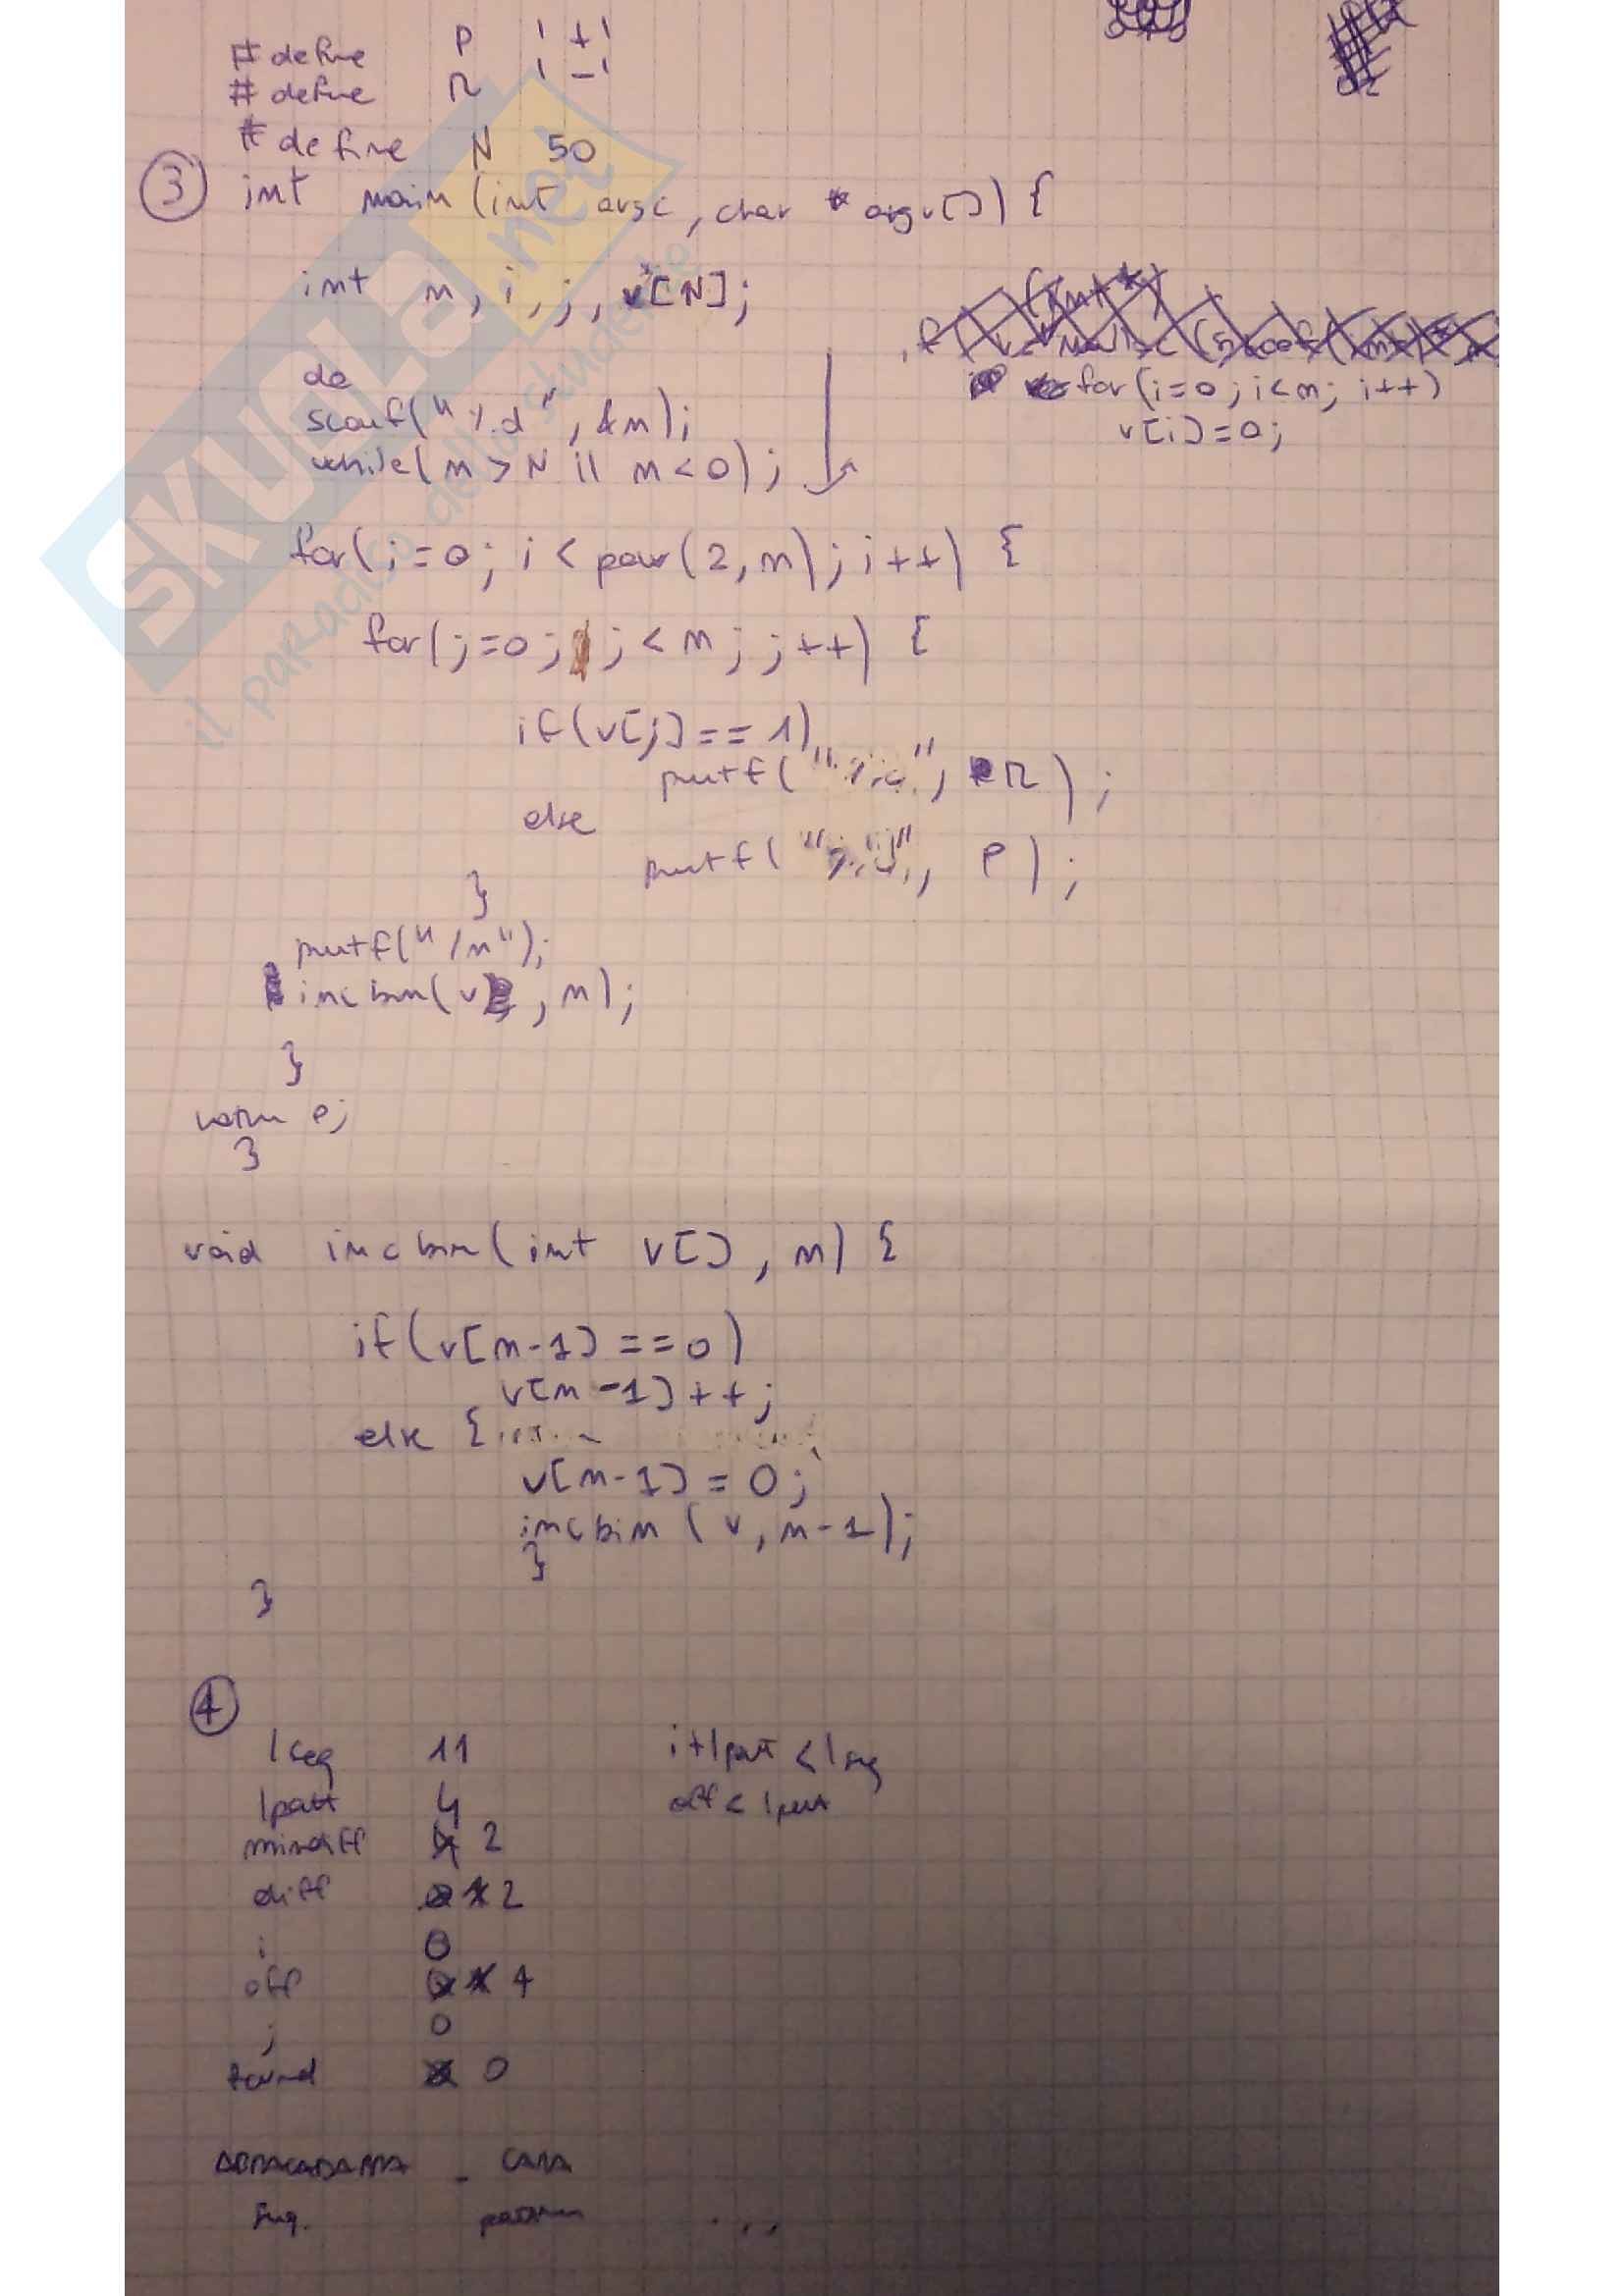 #define P '+'
#define M '-'
#define N 50
3 int main(int argc, char * argv[]) {
int n, i, j, v[N];
do
scanf("%d", &n);
while(n > N || n < 0);
for(i=0; i<n; i++)
v[i]=0;
for(i=0; i < pow(2,n); i++) {
for(j=0; j < n; j++) {
if(v[j]==1)
printf("%c", M);
else
printf(" ", P);
}
printf("/n");
incbin(v, n);
}
return 0;
}
void incbin(int v[], n) {
if(v[n-1]==0)
v[n-1]++;
else {
v[n-1]=0;
incbin(v, n-1);
}
}
4
lseq 11 i+lpatt < lseq
lpatt 4 off < lpatt
mindiff 2
diff 2
i 0
off 4
j 0
found 0
ABRACADABRA - CARA
seq. pattern ...
SKUOLA.net
il paradiso dello studente